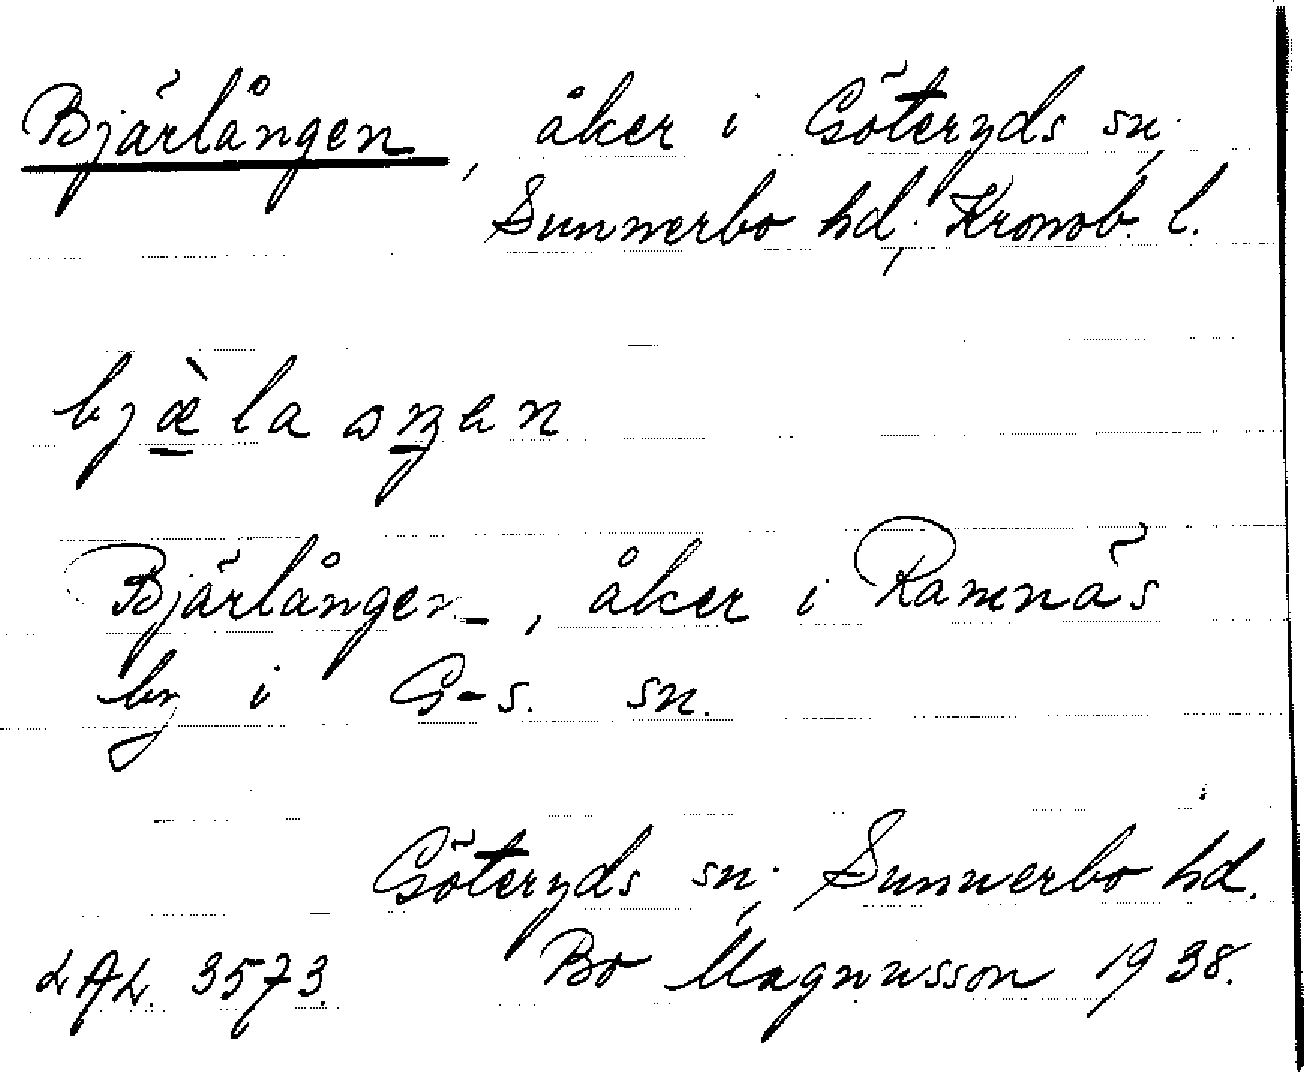 Bjärlången, åker i Göteryds sn.,
Sunnerbo hd., Kronob. l.
bjæ̀la åŋen
Bjärlången, åker i Ramnäs
by i G-s. sn.
Göteryds sn., Sunnerbo hd.
LAL. 3573. Bo Magnusson 1938.